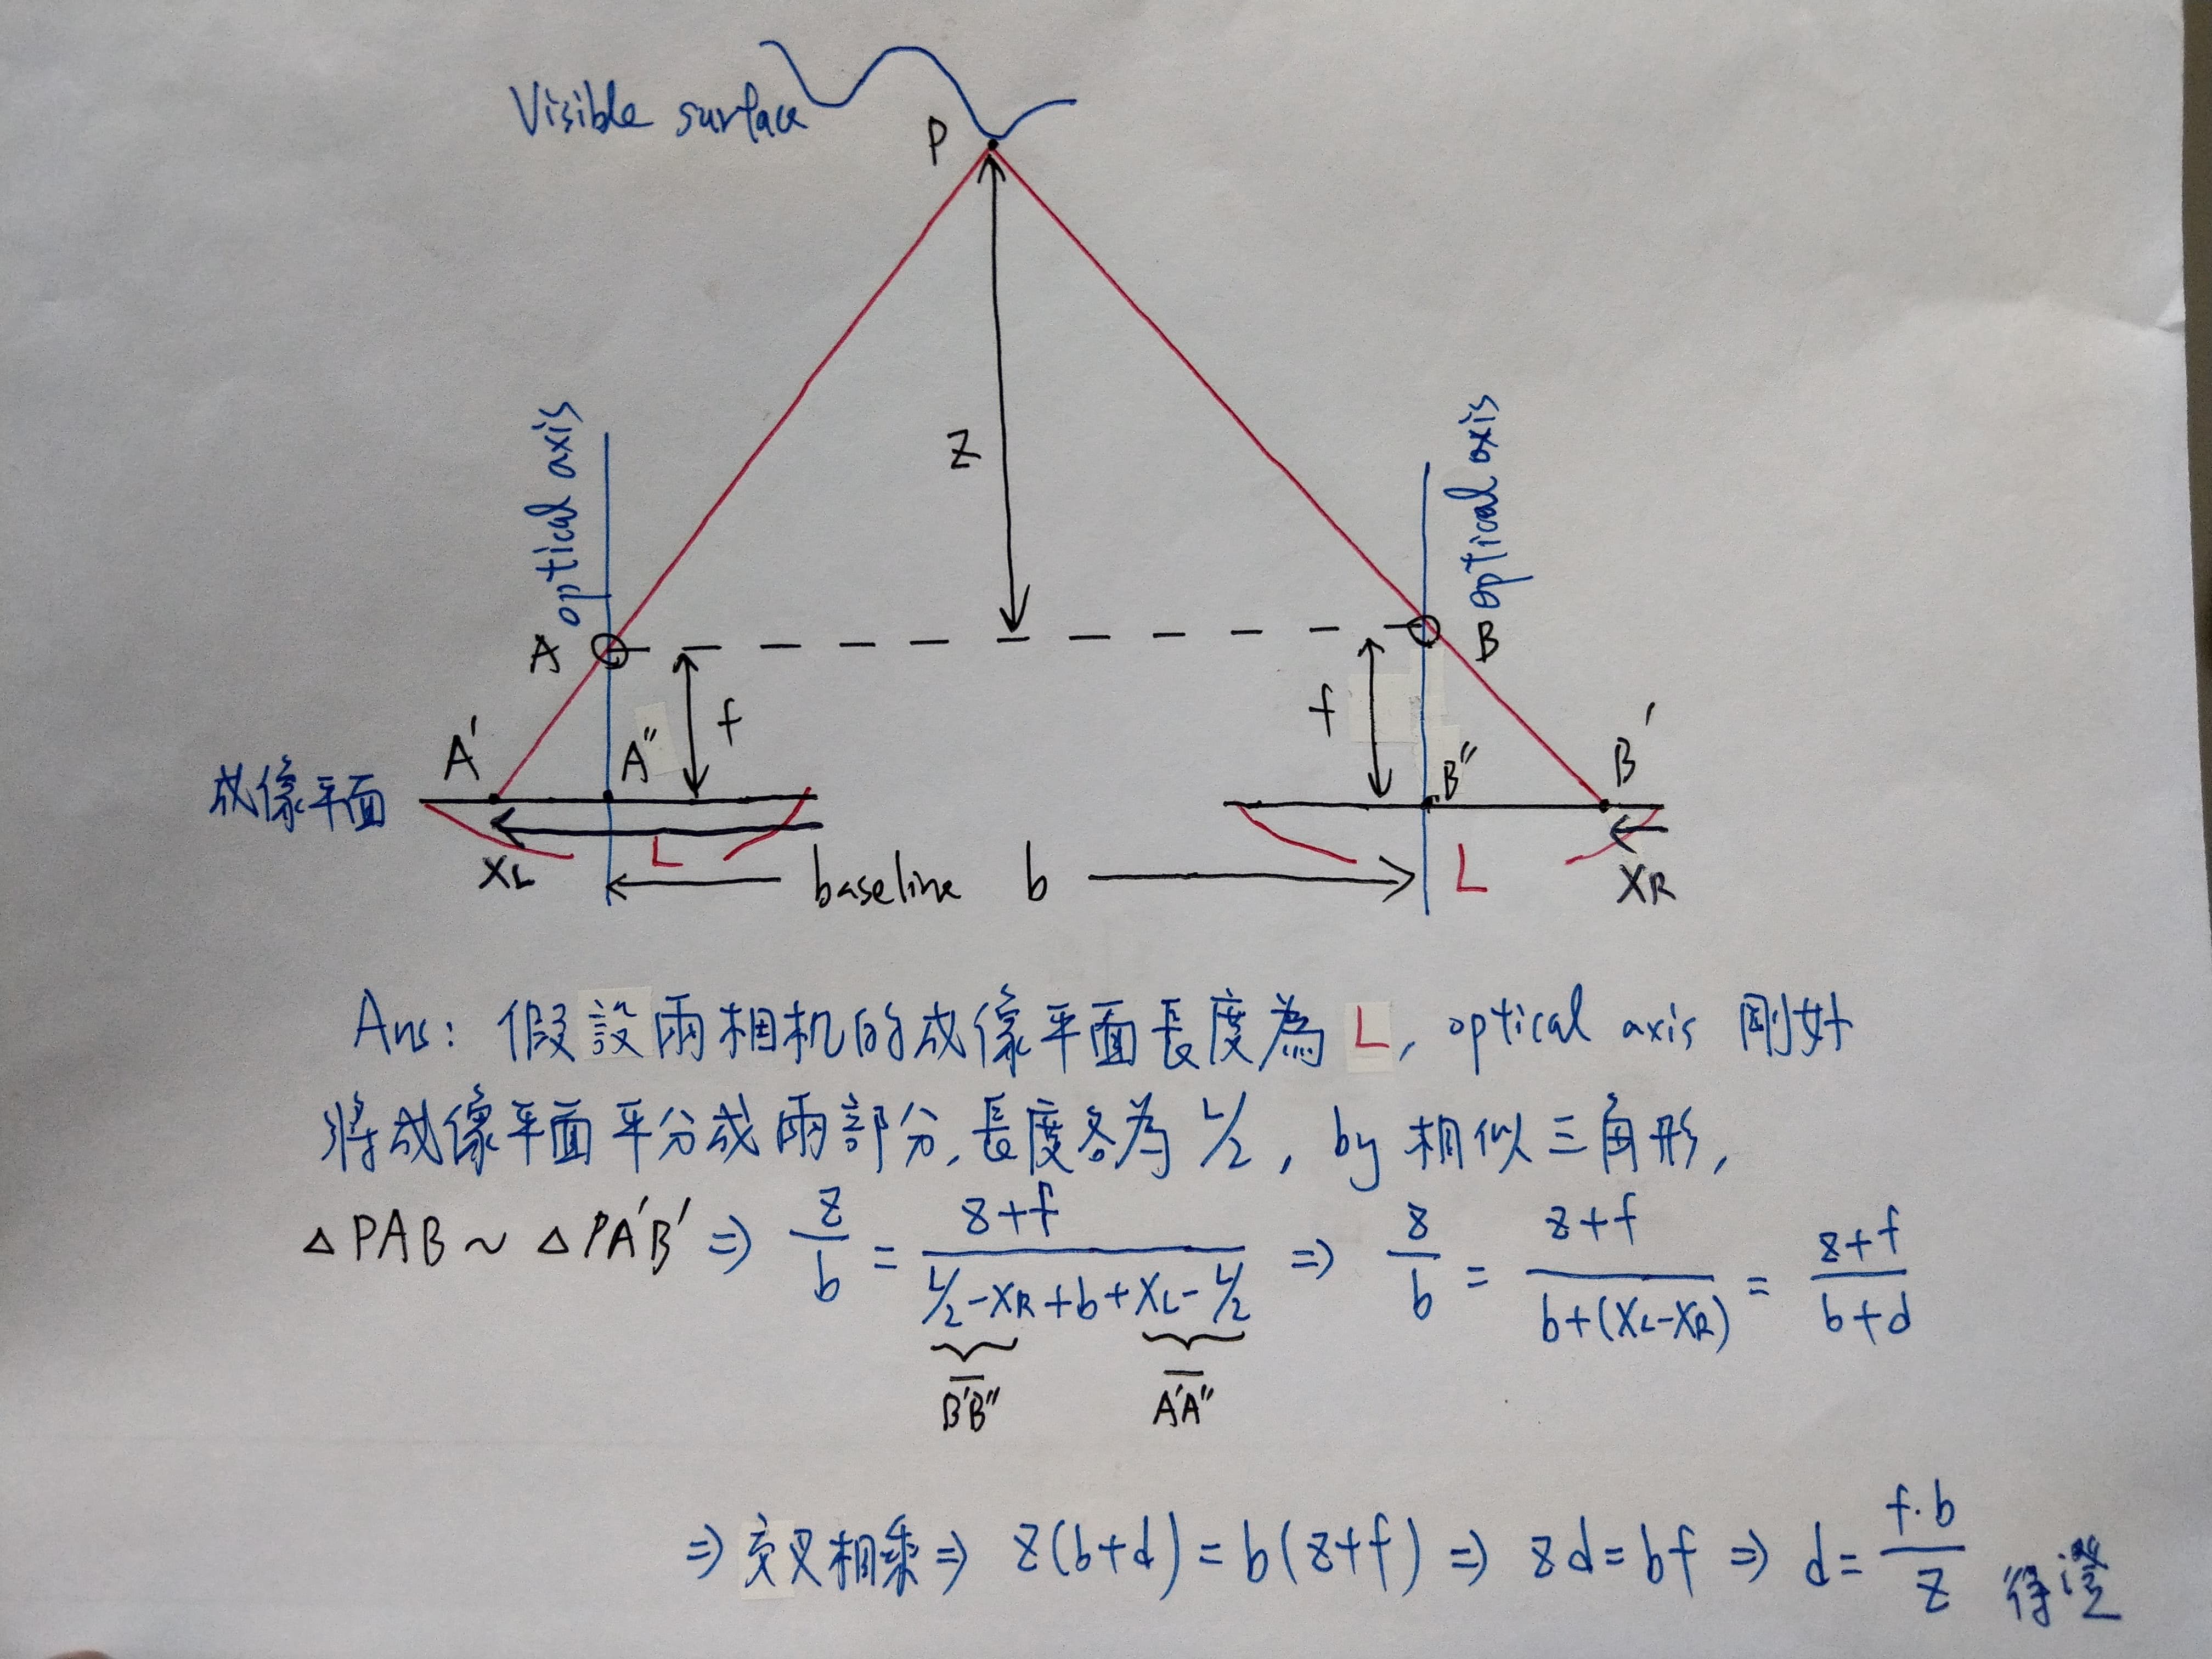 Visible surface
P
Z
optical axis
optical axis
A
B
f
f
A'
A"
B"
B'
成像平面
XL
L
baseline b
L
XR
Ans: 假設兩相机的成像平面長度為 L, optical axis 剛好
將成像平面平分成兩部分,長度各為 L/2, by 相似三角形,
△PAB ~ △PA'B' => z/b = (z+f)/(L/2-XR+b+XL-L/2) => z/b = (z+f)/(b+(XL-XR)) = (z+f)/(b+d)
B'B" A'A"
=> 交叉相乘 => z(b+d) = b(z+f) => zd = bf => d = f·b/z 得證